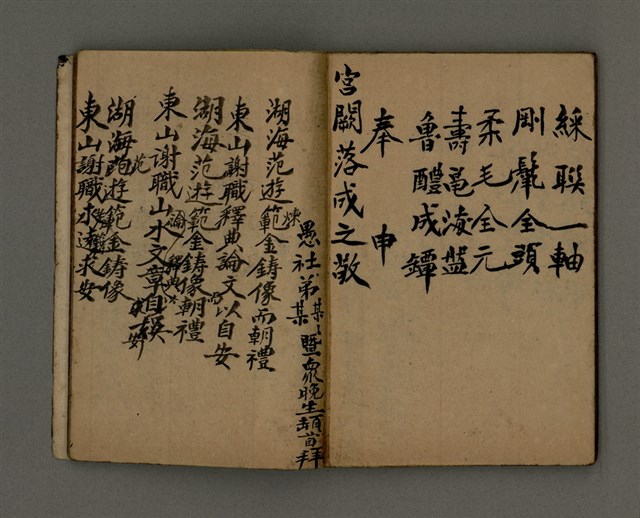 綵聯一軸
剛鬣全頭
柔毛全元
壽黽海盤
魯醴成罈
奉申
宮闕落成之敬
愚社弟某某暨眾晚生頓首拜
湖海范遊範金鑄像而朝禮
東山謝職釋典論文以自安
湖海范遊範金鑄像朝禮
東山謝職山水文章自娛
湖海范遊範金鑄像
東山謝職求安